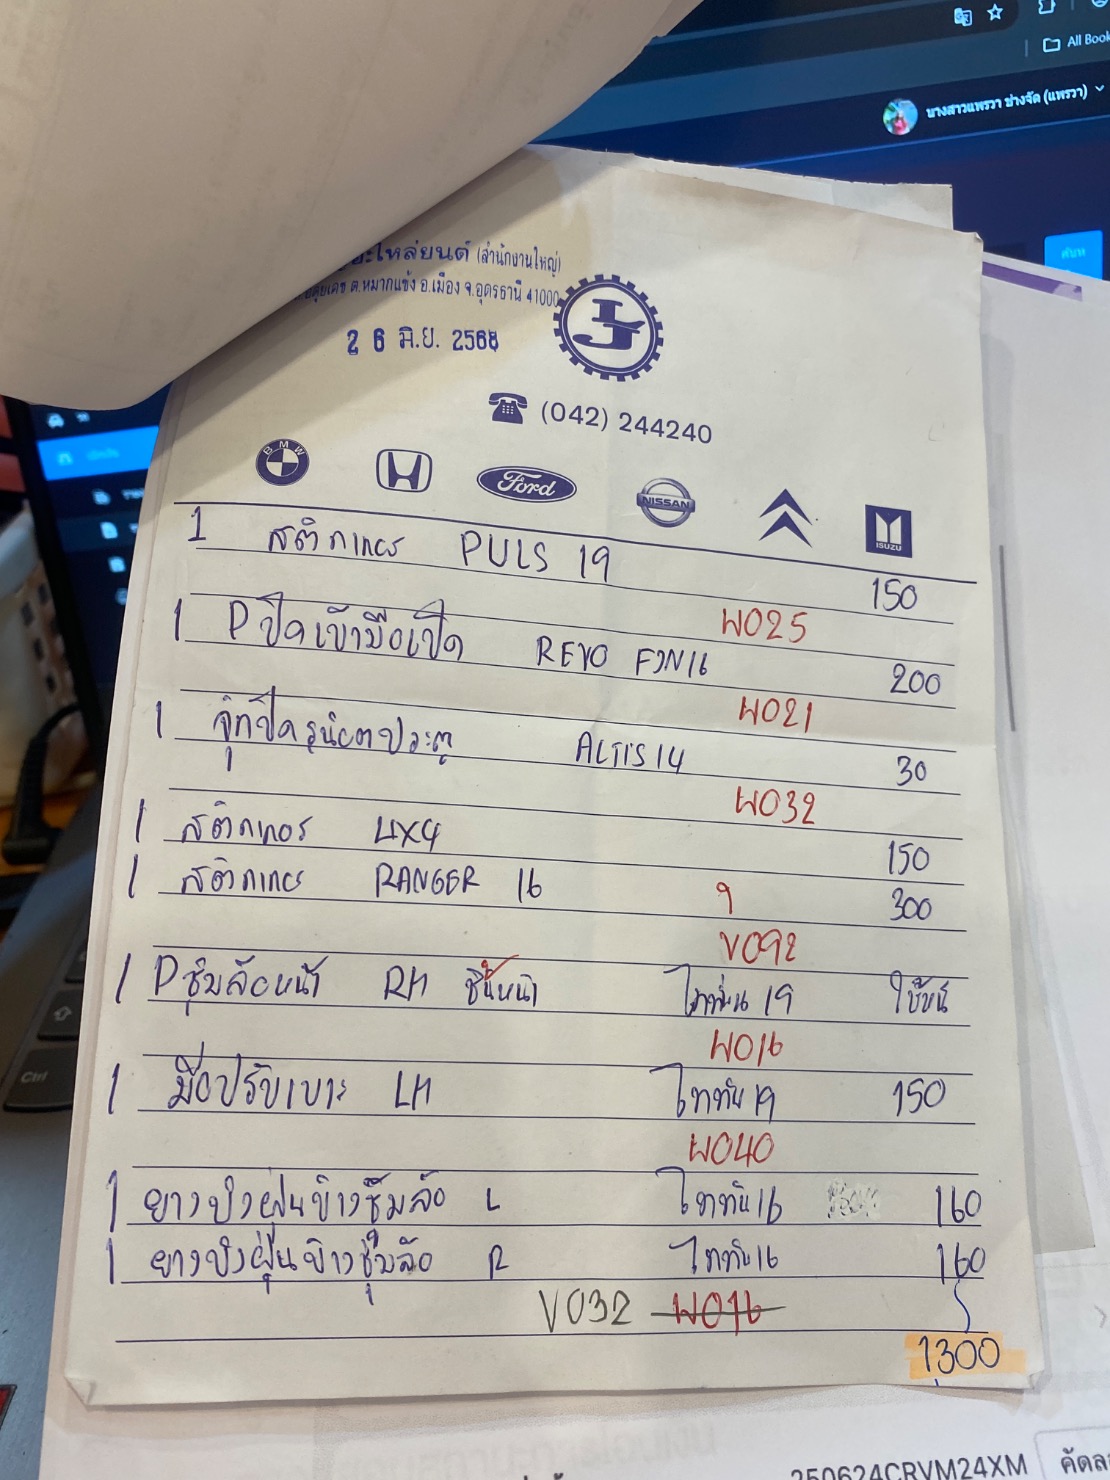 All Book
นางสาวแพรวา ช่างจัด (แพรวา)
ค้นหา
ะไหล่ยนต์ (สำนักงานใหญ่)
ต.หมากแข้ง อ.เมือง จ.อุดรธานี 41000
2 6 มิ.ย. 2568
(042) 244240
BMW
Ford
NISSAN
ISUZU
1 สติกเกอร์ PULS 19 150
W025
1 Pปิดเบ้ามือเปิด REVO FJN16 200
W021
1 จุ๊กปิดรูน๊อตประตู ALTIS14 30
W032
1 สติกเกอร์ 4X4 150
1 สติกเกอร์ RANGER 16 9 300
V092
1 Pซุ้มล้อหน้า RH ชิ้นหน้า ไททัน 19 ใบขน
W016
1 มือปรับเบาะ LH ไททัน 19 150
W040
1 ยางบังฝุ่นข้างซุ้มล้อ L ไททัน16 160
1 ยางบังฝุ่นข้างซุ้มล้อ R ไททัน16 160
V032 W016
1,300
Ctrl
250624CRVM24XM
คัดล